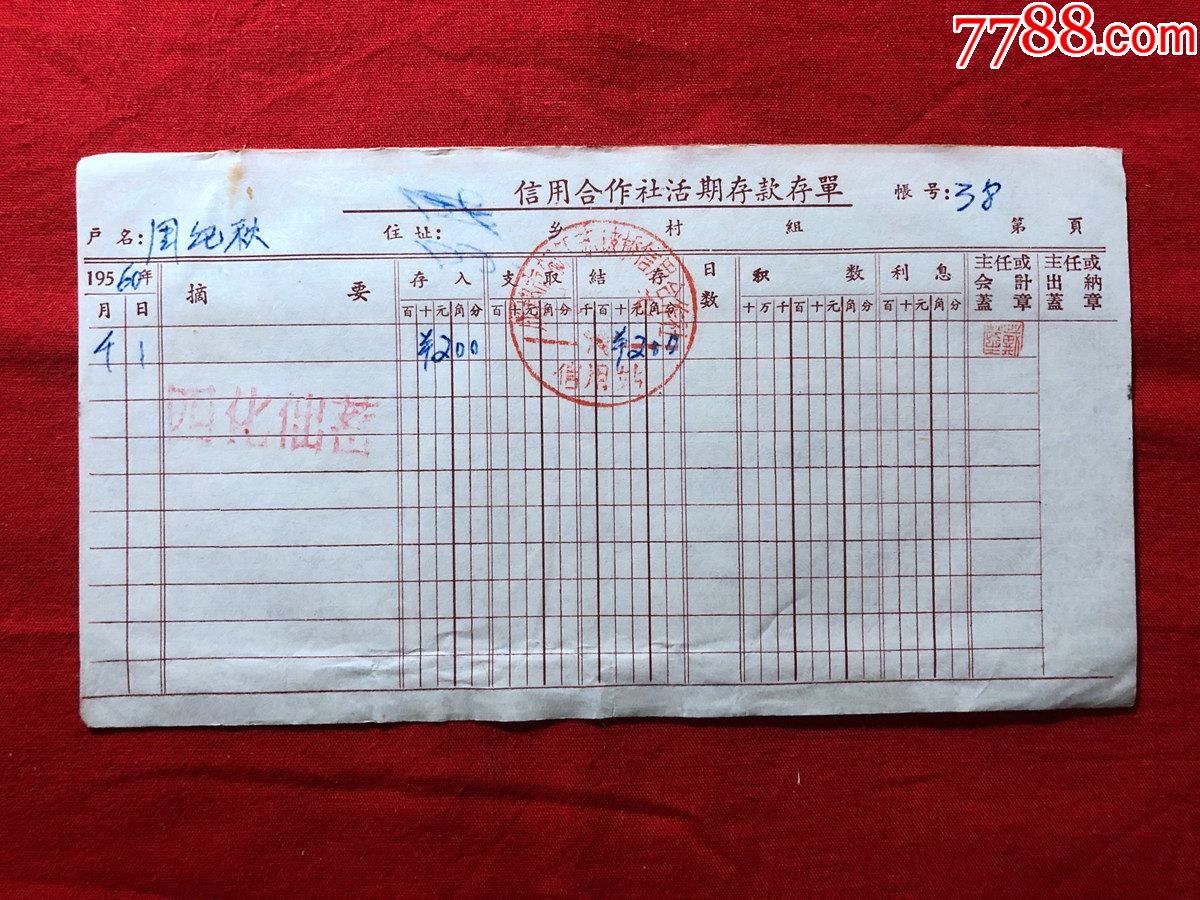 7788.com
信用合作社活期存款存單
帳号:38
戶名:周纪秋 住址: 乡 村 組 第 頁
1956 60年 摘 要 存入 支取 結存 日数 积数 利息 主任或会計蓋章 主任或出納蓋章
月 日 百十元角分 百十元角分 千百十元角分 十万千百十元角分 百十元角分
1 ¥200 ¥200
信用